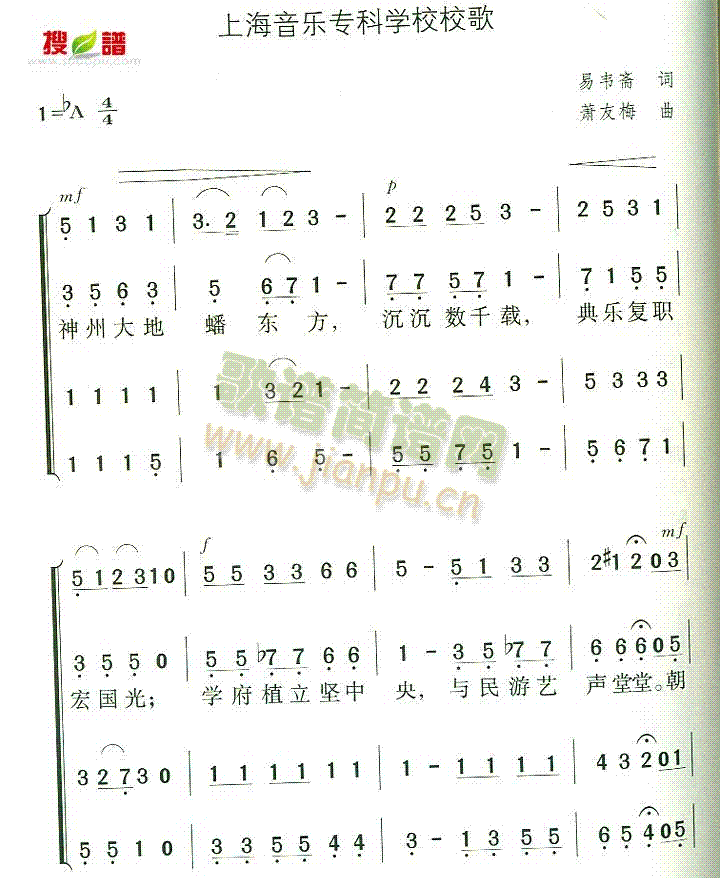 上海音乐专科学校校歌
搜 谱
www.socopu.com
易韦斋 词
1=♭A 4/4
萧友梅 曲
mf p
5 1 3 1 | 3. 2 1 2 3 - | 2 2 2 5 3 - | 2 5 3 1
3 5 6 3 | 5 6 7 1 - | 7 7 5 7 1 - | 7 1 5 5
神州大地 蟠东方，沉沉数千载，典乐复职
歌谱简谱网
www.jianpu.cn
1 1 1 1 | 1 3 2 1 - | 2 2 2 4 3 - | 5 3 3 3
1 1 1 5 | 1 6 5 - | 5 5 7 5 1 - | 5 6 7 1
f mf
5 1 2 3 1 0 | 5 5 3 3 6 6 | 5 - 5 1 3 3 | 2 #1 2 0 3
3 5 5 0 | 5 5 ♭7 7 6 6 | 1 - 3 5 ♭7 7 | 6 6 6 0 5
宏国光；学府植立坚中央，与民游艺声堂堂。朝
3 2 7 3 0 | 1 1 1 1 1 1 | 1 - 1 1 1 1 | 4 3 2 0 1
5 5 1 0 | 3 3 5 5 4 4 | 3 - 3 5 5 5 | 6 5 4 0 5